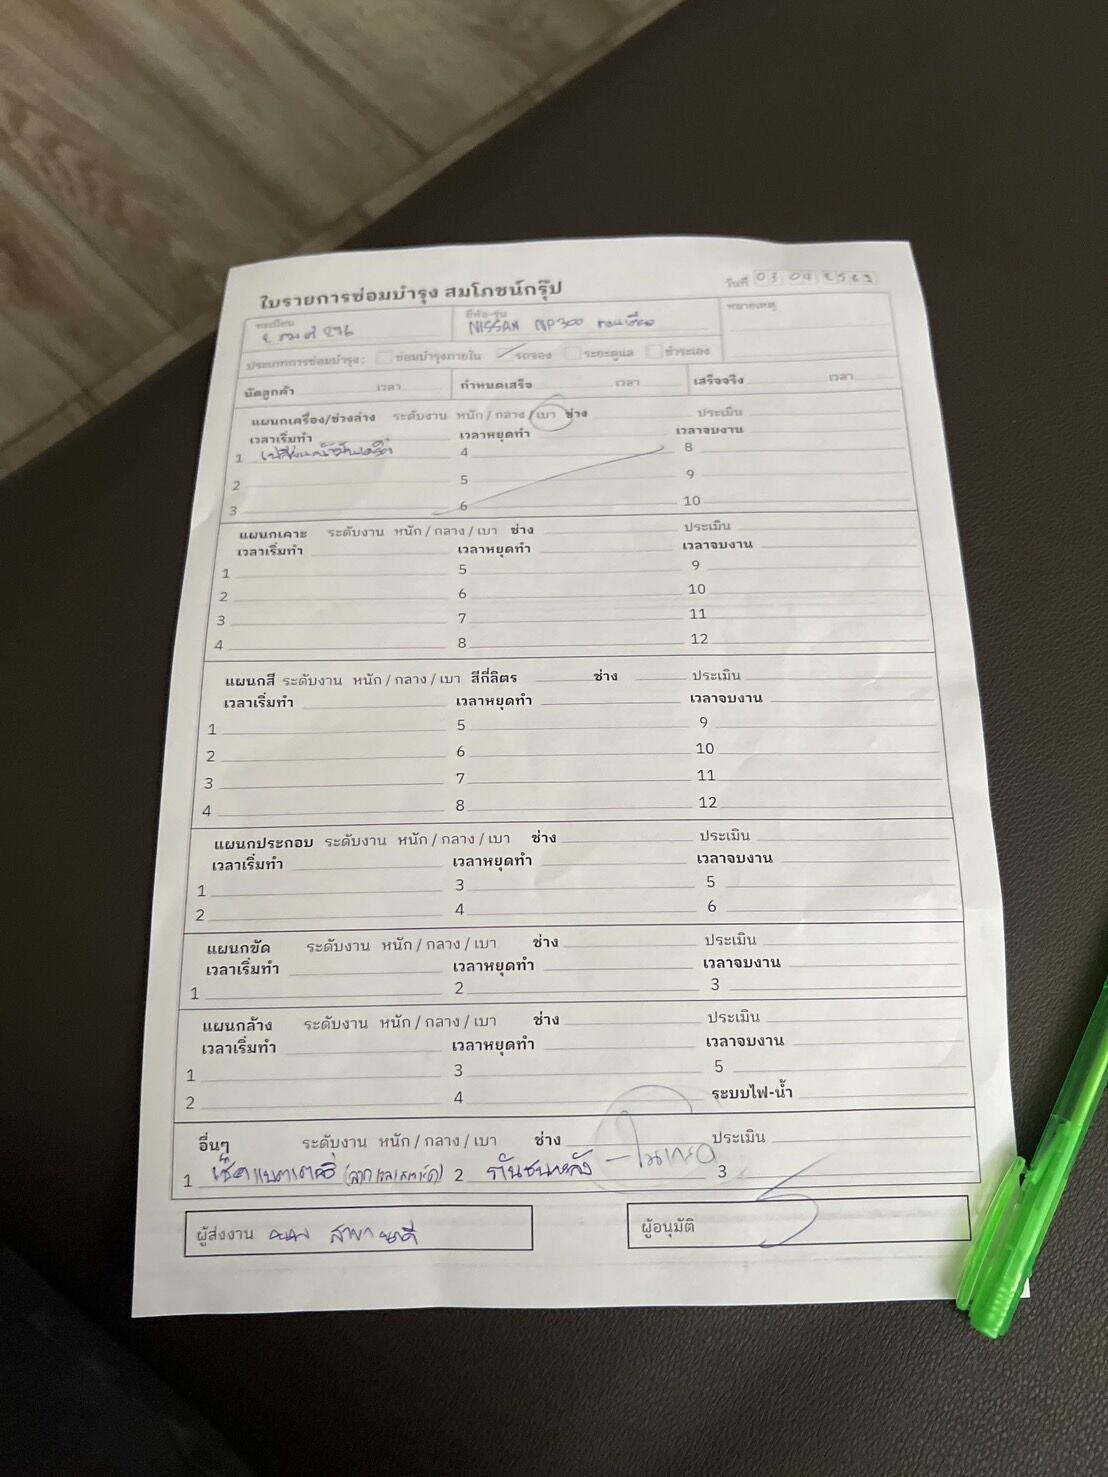 ใบรายการซ่อมบำรุง สมโภชน์กรุ๊ป
วันที่ 03 04
ทะเบียน ยี่ห้อ-รุ่น หมายเหตุ
NISSAN NP300
ประเภทการซ่อมบำรุง : ซ่อมบำรุงภายใน รถจอง ระยะดูแล ชำระเอง
นัดลูกค้า เวลา กำหนดเสร็จ เวลา เสร็จจริง เวลา
แผนกเครื่อง/ช่วงล่าง ระดับงาน หนัก / กลาง / เบา ช่าง ประเมิน
เวลาเริ่มทำ เวลาหยุดทำ เวลาจบงาน
1 เปลี่ยนน้ำมันเครื่อง 4 8
2 5 9
3 6 10
แผนกเคาะ ระดับงาน หนัก / กลาง / เบา ช่าง ประเมิน
เวลาเริ่มทำ เวลาหยุดทำ เวลาจบงาน
1 5 9
2 6 10
3 7 11
4 8 12
แผนกสี ระดับงาน หนัก / กลาง / เบา สีกี่ลิตร ช่าง ประเมิน
เวลาเริ่มทำ เวลาหยุดทำ เวลาจบงาน
1 5 9
2 6 10
3 7 11
4 8 12
แผนกประกอบ ระดับงาน หนัก / กลาง / เบา ช่าง ประเมิน
เวลาเริ่มทำ เวลาหยุดทำ เวลาจบงาน
1 3 5
2 4 6
แผนกขัด ระดับงาน หนัก / กลาง / เบา ช่าง ประเมิน
เวลาเริ่มทำ เวลาหยุดทำ เวลาจบงาน
1 2 3
แผนกล้าง ระดับงาน หนัก / กลาง / เบา ช่าง ประเมิน
เวลาเริ่มทำ เวลาหยุดทำ เวลาจบงาน
1 3 5
2 4 ระบบไฟ-น้ำ
อื่นๆ ระดับงาน หนัก / กลาง / เบา ช่าง ประเมิน
1 เช็คแบตเตอรี่ 2 กันชนหลัง 3
ผู้ส่งงาน ผู้อนุมัติ